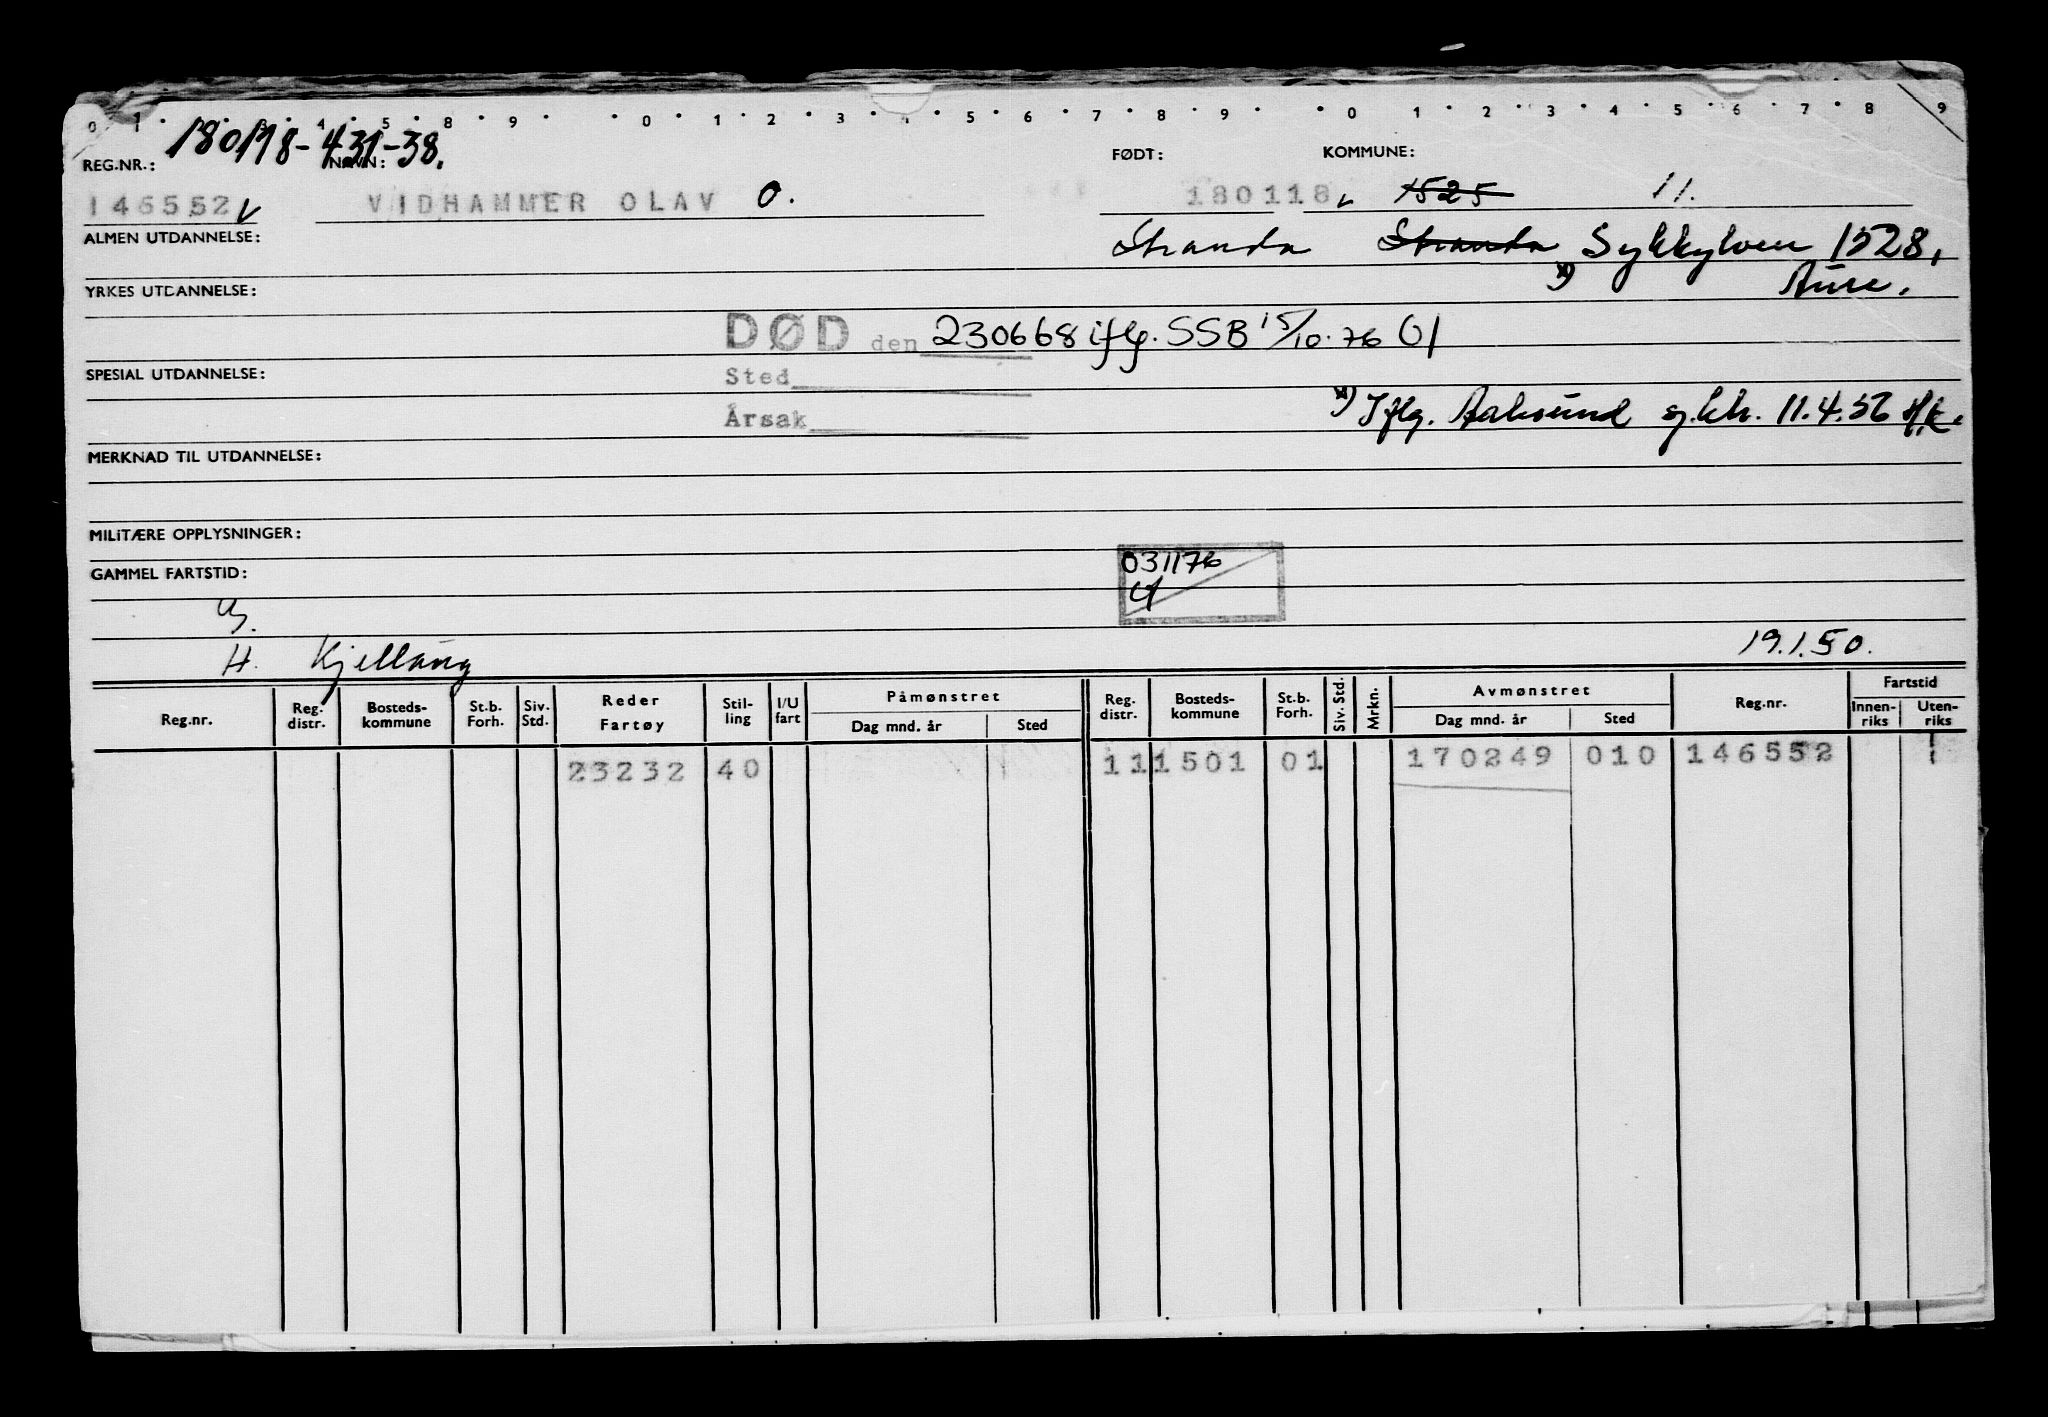 0 1 . . 3 . 4 . 5 . 8 . 9 . . 0 . 1 . 2 . 3 . 4 . 5 . 6 . 7 . 8 . 9 . . 0 . 1 . 2 . 3 . 4 . 5 . 6 . 7 . 8 . 9
180118-431-38.
REG.NR.: NAVN: FØDT: KOMMUNE:
146552 v VIDHAMMER OLAV O. 180118 v 1525 11.
ALMEN UTDANNELSE: Stranda Stranda Sykkylven 1528,
YRKES UTDANNELSE: x) Aure.
DØD den 230668 iflg. SSB 15/10.76
SPESIAL UTDANNELSE: Sted
Årsak x) Iflg. Aalesund sj.ktr. 11.4.56
MERKNAD TIL UTDANNELSE:
MILITÆRE OPPLYSNINGER:
031176
GAMMEL FARTSTID:
H. Kjellaug 19.1.50.
Reg.nr. Reg. distr. Bosteds- kommune St.b. Forh. Siv. Std. Reder Fartøy Stil- ling I/U fart Påmønstret Dag mnd. år Sted Reg. distr. Bosteds- kommune St.b. Forh. Siv. Std. Mrkn. Avmønstret Dag mnd. år Sted Reg.nr. Fartstid Innen- riks Uten- riks
23232 40 11 1501 01 170249 010 146552